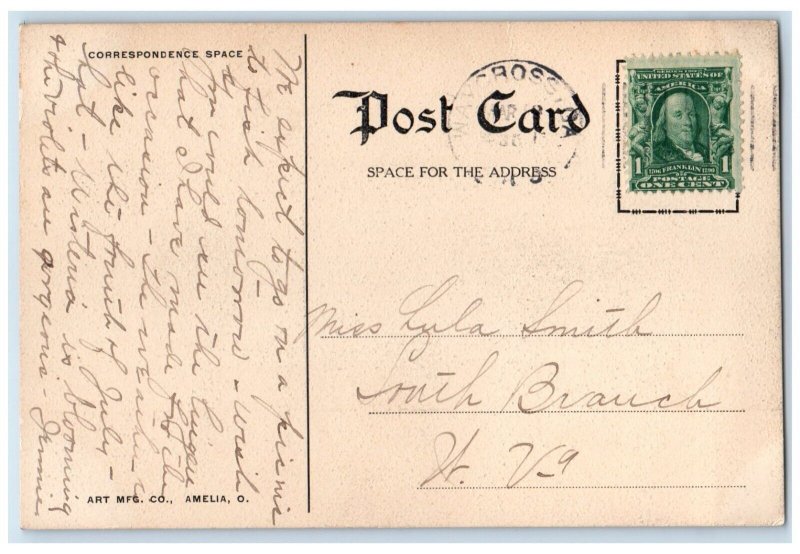 CORRESPONDENCE SPACE
Post Card
SPACE FOR THE ADDRESS
WAYCROSS, GA
SERIES 1902
UNITED STATES OF
AMERICA
1 1
1706 FRANKLIN 1790
POSTAGE
ONE CENT
We expect to go on a picnic
to fish tomorrow - wish
you could see the
that I have made for the
occasion - The weather is
like the fourth of July -
Wisteria is blooming
& the violets are gorgeous - Jennie
Miss Lula Smith
South Branch
W. Va
ART MFG. CO., AMELIA, O.